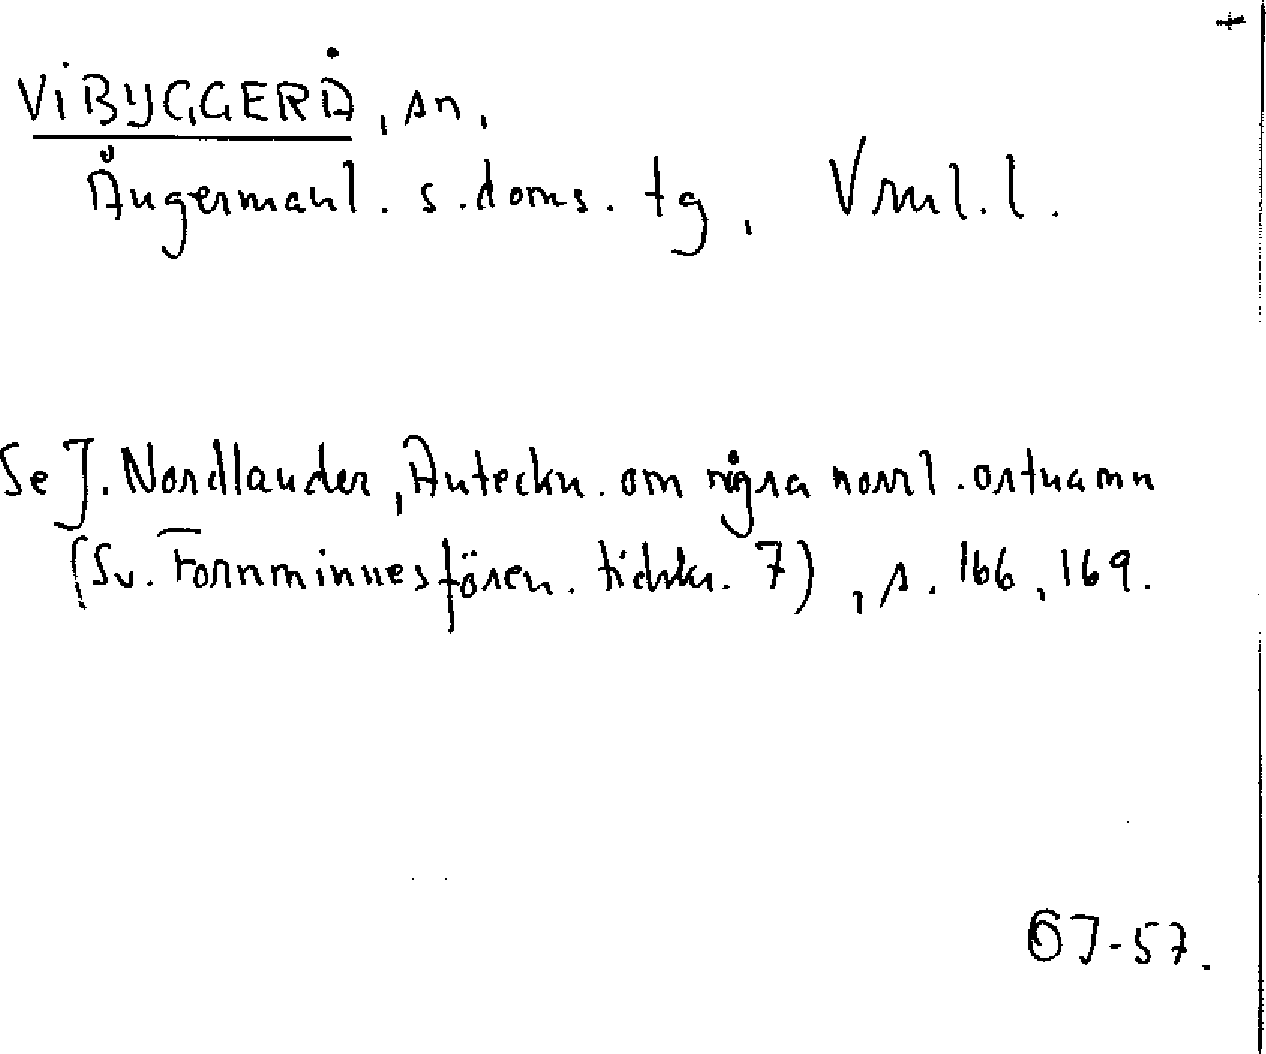 VIBYGGERÅ, sn,
Ångermanl. s. doms. tg, Vrnl. l.
Se J. Nordlander, Anteckn. om några norrl. ortnamn
(Sv. Fornminnesfören. tidskr. 7), s. 166, 169.
GJ-57.